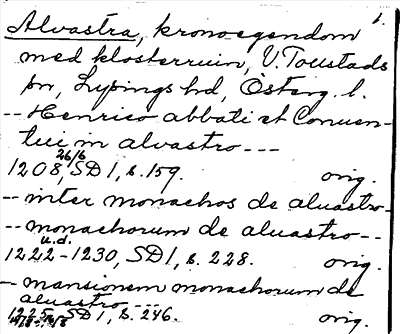 1.
Alvastra, kronoegendom
med klosterruin, V. Tollstads
sn, Lysings hd, Österg. l.
-- Henrico abbati et Conuen-
tui in alvastro ---
1208 26/6, SD 1, s. 159. orig.
-- inter monachos de aluastro-
-- monachorum de aluastro --
1222-1230 u.d., SD 1, s. 228. orig.
-- mansionem monachorum de
aluastro ---
1225 SD 1, s. 246. orig.